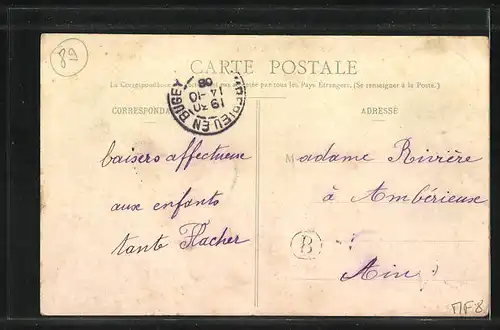 89
CARTE POSTALE
La Correspondance au recto n'est pas acceptée par tous les Pays Étrangers. (Se renseigner à la Poste.)
CORRESPONDANCE
ADRESSE
AMBÉRIEU EN BUGEY
19 30
14 -10
08
baisers affectueux
aux enfants
tante Flacher
Madame Rivière
à Ambérieux
B
Ain
MF8